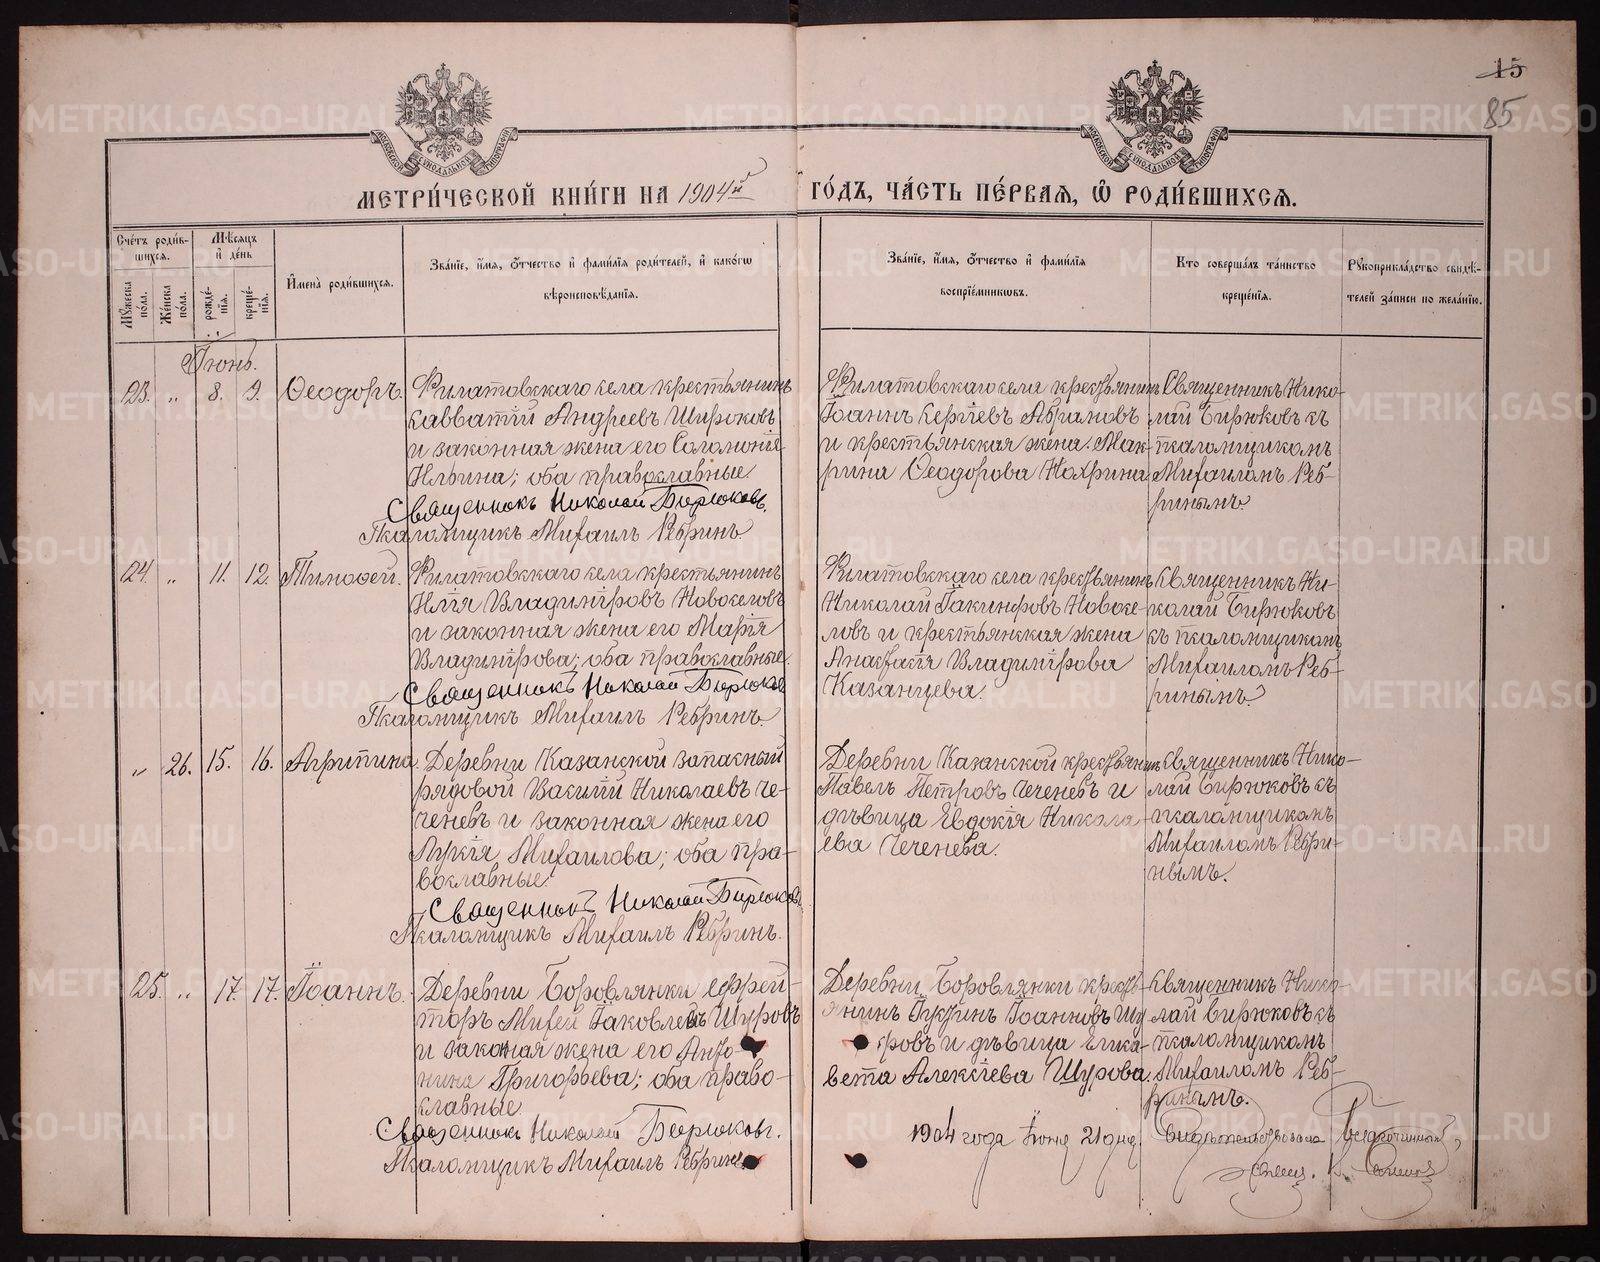 15
85
МОСКОВСКОЙ СѴНОДАЛЬНОЙ ТИПОГРАФІИ
МОСКОВСКОЙ СѴНОДАЛЬНОЙ ТИПОГРАФІИ
МЕТРИ́ЧЕСКОЙ КНИ́ГИ НА 1904й ГО́ДЪ, ЧА́СТЬ ПЕ́РВАЯ, Ѽ РОДИ́ВШИХСЯ.
Сче́тъ роди́в-
шихся.
Мꙋ́жеска по́ла.
Же́нска по́ла.
Мѣ́сяцъ
и де́нь
рожде́-
нїя.
креще́-
нїя.
Имена̀ роди́вшихся.
Зва́нїе, и́мя, о́тчество и фами́лїя роди́телей, и како́гѡ
вѣроисповѣ́данїя.
Зва́нїе, и́мя, о́тчество и фами́лїя
воспрїе́мниковъ.
Кто соверша́лъ та́инство
креще́нїя.
Рꙋкоприкла́дство свидѣ́-
телей за́писи по жела́нїю.
Іюнь.
23. „ 8. 9. Ѳеодоръ.
Филатовскаго села крестьянинъ
Савватій Андреевъ Широковъ
и законная жена его Соломонія
Ильина; оба православные.
Священникъ Николай Бирюковъ.
Псаломщикъ Михаилъ Ребринъ
Филатовскаго села крестьянинъ
Іоаннъ Сергіевъ Абрамовъ
и крестьянская жена Мак-
рина Ѳеодорова Нохрина
Священникъ Нико-
лай Бирюковъ съ
псаломщикомъ
Михаиломъ Реб-
ринымъ.
24. „ 11. 12. Тимоѳей.
Филатовскаго села крестьянинъ
Илія Владиміровъ Новоселовъ
и законная жена его Марія
Владимірова; оба православные.
Священникъ Николай Бирюковъ
Псаломщикъ Михаилъ Ребринъ.
Филатовскаго села крестьянинъ
Николай Іакинфовъ Новосе-
ловъ и крестьянская жена
Анастасія Владимірова
Казанцева.
Священникъ Ни-
колай Бирюковъ
съ псаломщикомъ
Михаиломъ Реб-
ринымъ.
„ 26. 15. 16. Агрипина.
Деревни Казанской запасный
рядовой Василій Николаевъ Че-
ченевъ и законная жена его
Лукія Михаилова; оба пра-
вославные.
Священникъ Николай Бирюковъ
Псаломщикъ Михаилъ Ребринъ.
Деревни Казанской крестьянинъ
Павелъ Петровъ Чеченевъ и
дѣвица Евдокія Никола-
ева Чеченева.
Священникъ Нико-
лай Бирюковъ съ
псаломщикомъ
Михаиломъ Ребри-
нымъ.
25. „ 17. 17. Іоаннъ.
Деревни Боровлянки ефрей-
торъ Михей Іаковлевъ Щуровъ
и законная жена его Анто-
нина Григорьева; оба право-
славные.
Священникъ Николай Бирюковъ.
Псаломщикъ Михаилъ Ребринъ.
Деревни Боровлянки кресть-
янинъ Іустинъ Іоанновъ Щу-
ровъ и дѣвица Елиса-
вета Алексіева Щурова.
Священникъ Нико-
лай Бирюковъ съ
псаломщикомъ
Михаиломъ Реб-
ринымъ.
1904 года Іюня 21 дня. Свидѣтельствовалъ Благочинный,
METRIKI.GASO-URAL.RU